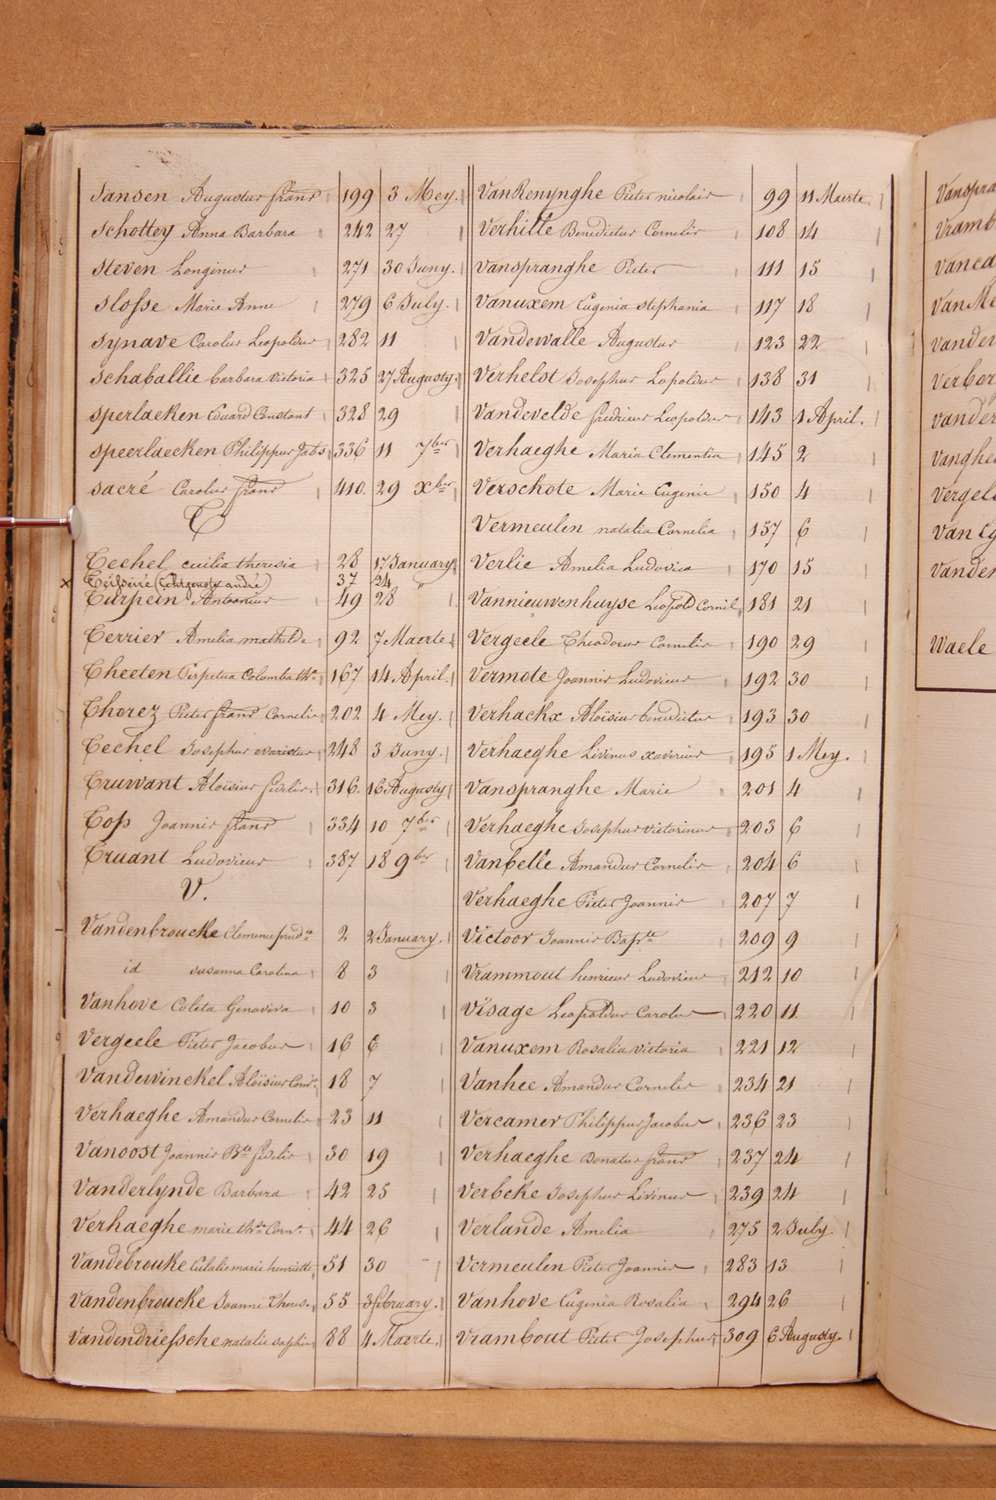 Sansen Augustus frans 199 3 Mey.
Schottey Anna Barbara 242 27
Steven Longinus 271 30 Juny.
Slosse Marie Anne 279 6 July.
Synave Carolus Leopoldus 282 11
Schaballie barbara victoria 325 27 Augusty
Sperlaeken Eduard Constant 328 29
Speerlaecken Philippus Jabs 336 11 7ber
Sacré Carolus frans 410 29 xber
T
Techel cicilia theresia 28 17 January
x (Telgenote andré) 37 24 "
Turpein Antonius 49 28
Terrier Amelia mathilde 92 7 Maerte
Theeten Perpetua Colomba the 167 14 April.
Thorez Pieter frans Cornelis 202 4 Mey.
Techel Josephus evaristus 248 3 Juny.
Truwant Aloïsius fidelis 316 16 Augusty
Tops Joannis frans 334 10 7ber
Truant Ludovicus 387 18 9ber
V.
Vandenbroucke Clemence 2 2 January.
id susanna Carolina 8 3
Vanhove Coleta Genoviva 10 3
Vergeele Pieter Jacobus 16 6
Vandewinckel Aloïsius Corns. 18 7
Verhaeghe Amandus Cornelis 23 11
Vanoost Joannis Bte fidelis 30 19
Vanderlynde Barbara 42 25
Verhaeghe marie the Corn. 44 26
Vandebrouke Eulalie marie henriette 51 30
Vandenbroucke Joanne 55 3 february.
Vandendriessche natalie sophie 88 4 Maerte.
VanRenynghe Pieter nicolais 99 11 Maerte.
Verhille Benedictus Cornelis 108 14
Vanspranghe Pieter 111 15
Vanuxem Eugenia stephania 117 18
Vandewalle Augustus 123 22
Verhelst Josephus Lopoldus 138 31
Vandevelde fredricus Leopoldus 143 1 April.
Verhaeghe Maria Clementia 145 2
Verschote Marie Eugenie 150 4
Vermeulen natalia Cornelia 157 6
Verlie Amelia Ludovica 170 15
Vannieuwenhuyse Leopold Cornil 181 21
Vergeele Theodorus Cornelis 190 29
Vermote Joannis Ludovicus 192 30
Verhackx Aloïsius benedictus 193 30
Verhaeghe Livinus xaverius 195 1 Mey.
Vanspranghe Marie 201 4
Verhaeghe Josephus victorinus 203 6
Vanbelle Amandus Cornelis 204 6
Verhaeghe Pieter Joannis 207 7
Victoor Joannis Bapte 209 9
Vrammout henricus Ludovicus 212 10
Visage Leopoldus Carolus 220 11
Vanuxem Rosalia victoria 221 12
Vanhee Amandus Cornelis 234 21
Vercamer Philippus Jacobus 236 23
Verhaeghe Donatus frans 237 24
Verbeke Josephus Livinus 239 24
Verlande Amelia 275 2 July
Vermeulen Pieter Joannis 283 13
Vanhove Eugenia Rosalia 294 26
Vrambout Pieter Josephus 309 6 Augusty.
Vanspra
Vramb
Vanca
VanMe
Vanden
Verbor
Vander
Vanghe
Vergel
Van Ey
Vanden
Waele